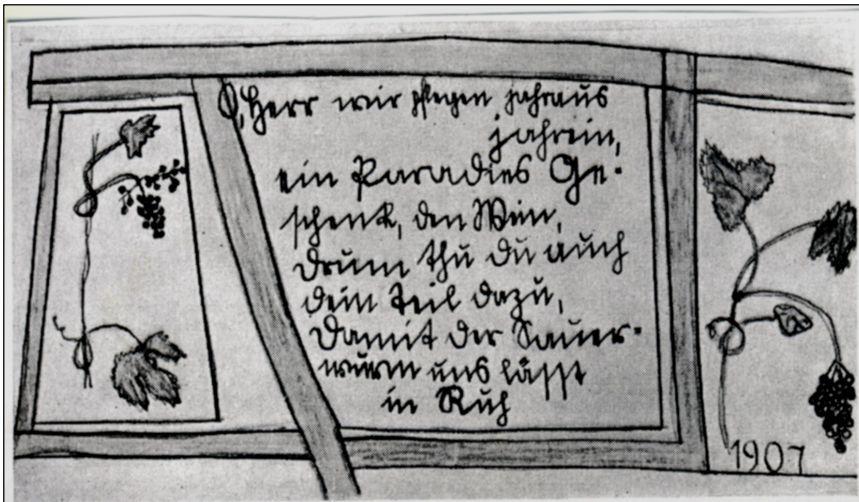 O, Herr wir pflegen jahraus
jahrein,
ein Paradies Ge-
schenk, den Wein,
drum thu du auch
dein Teil dazu,
Damit der Sauer-
wurm uns lässt
in Ruh
1907